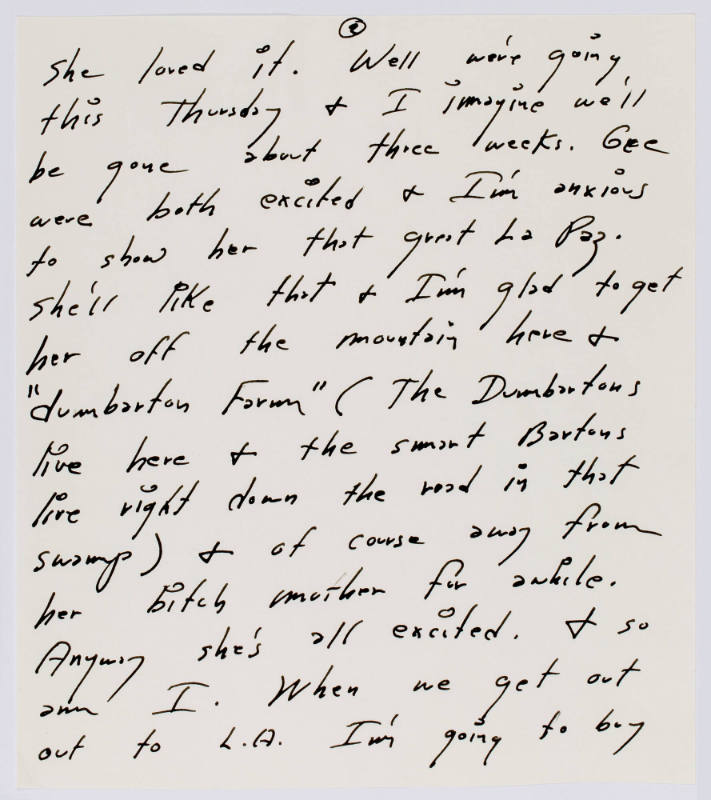 ②
She loved it. Well we're going
this Thursday & I imagine we'll
be gone about three weeks. Gee
were both excited & I'm anxious
to show her that great La Paz.
She'll like that & I'm glad to get
her off the mountain here &
"dumbarton Farm" (The Dumbartons
live here & the smart Bartons
live right down the road in that
swamp) & of course away from
her bitch mother for awhile.
Anyway she's all excited. & so
am I. When we get out
out to L.A. I'm going to buy